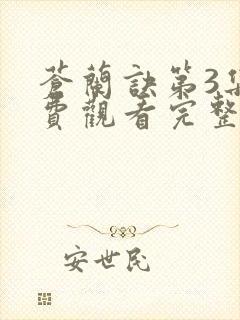 蒼蘭訣第3集
費觀看完整
安世民